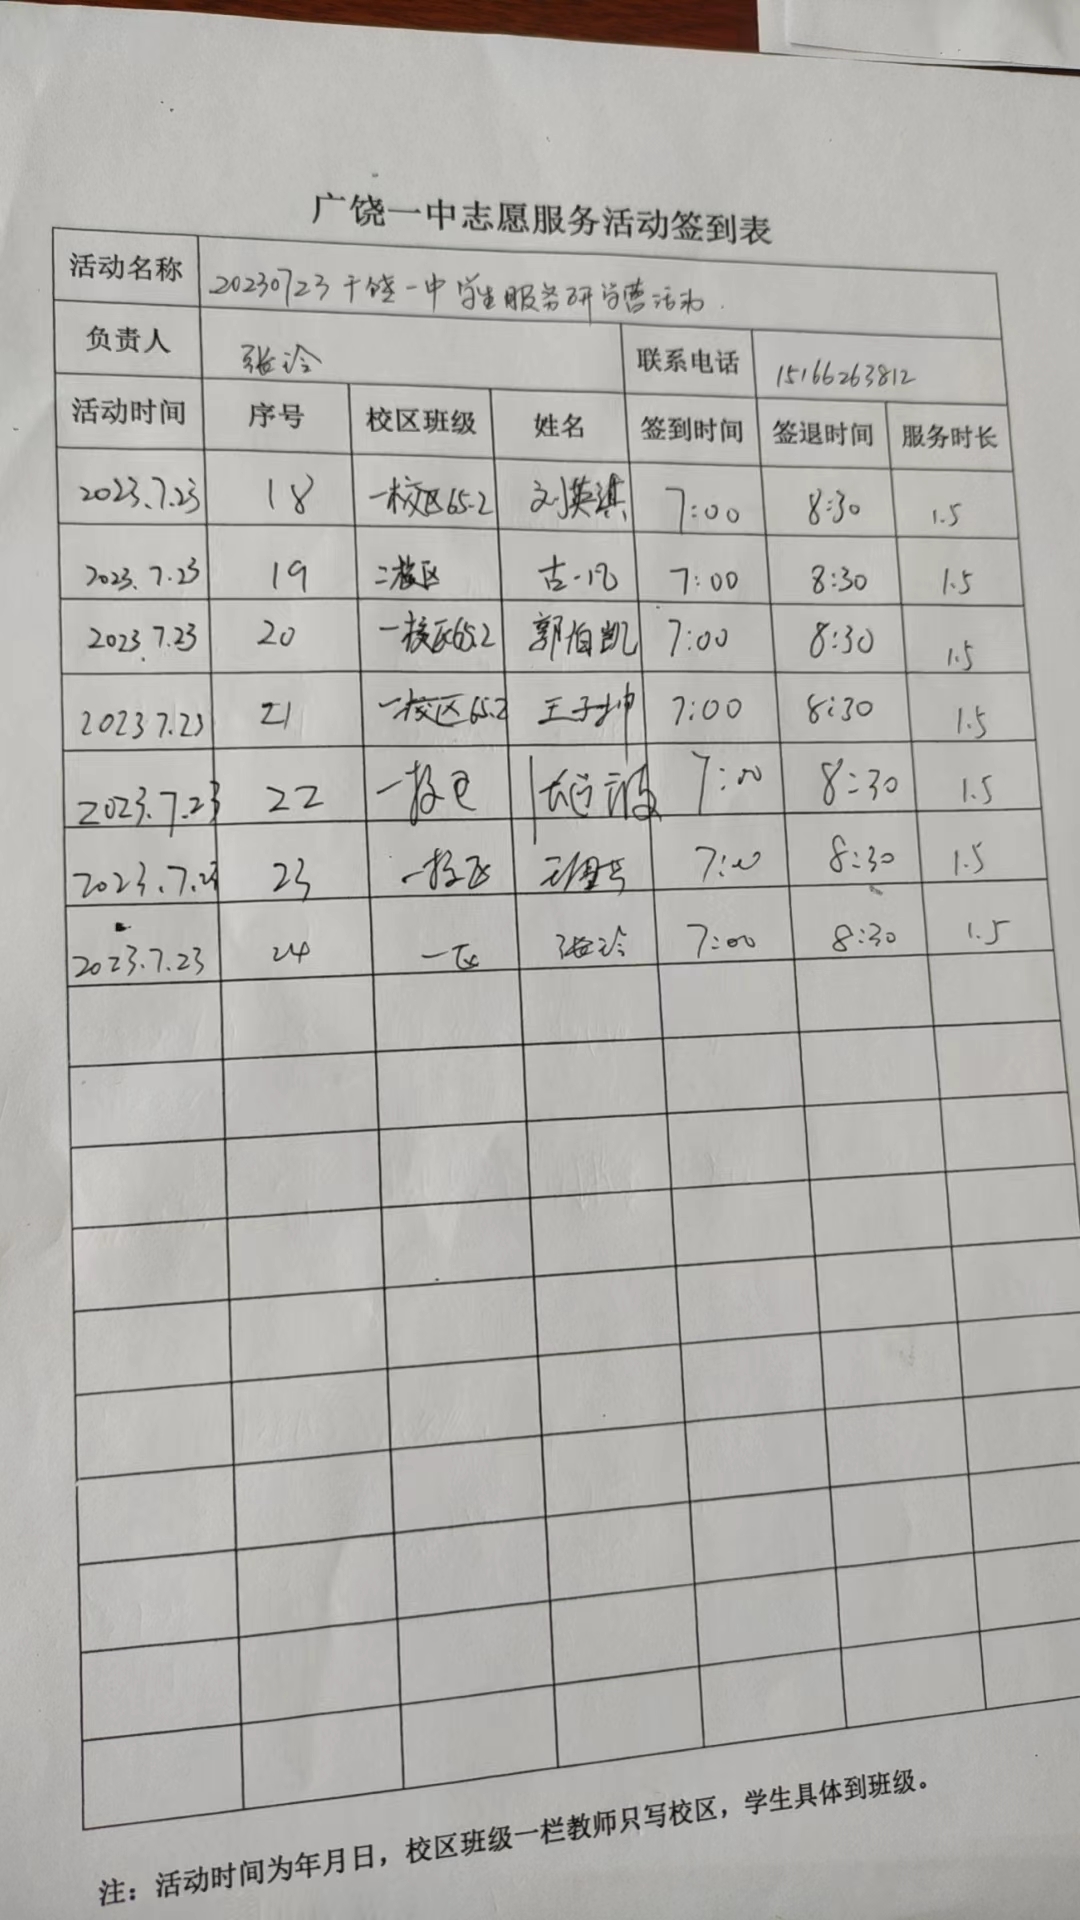 广饶一中志愿服务活动签到表
活动名称 20230723广饶一中学生服务研学营活动.
负责人 张泠 联系电话 15166263812
活动时间 序号 校区班级 姓名 签到时间 签退时间 服务时长
2023.7.23 18 一校区65.2 刘英淇 7:00 8:30 1.5
2023.7.23 19 二校区 古一凡 7:00 8:30 1.5
2023.7.23 20 一校区65.2 郭柏凯 7:00 8:30 1.5
2023 7.23 21 一校区65.2 王子坤 7:00 8:30 1.5
2023.7.23 22 一校区 7:00 8:30 1.5
2023.7.23 23 一校区 7:00 8:30 1.5
2023.7.23 24 一区 张泠 7:00 8:30 1.5
注：活动时间为年月日，校区班级一栏教师只写校区，学生具体到班级。